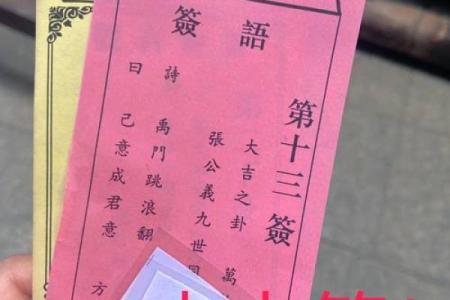 簽語
第十三簽
大吉之卦 萬
張公義九世同
詩曰
禹門跳浪翻
己意成君意 方